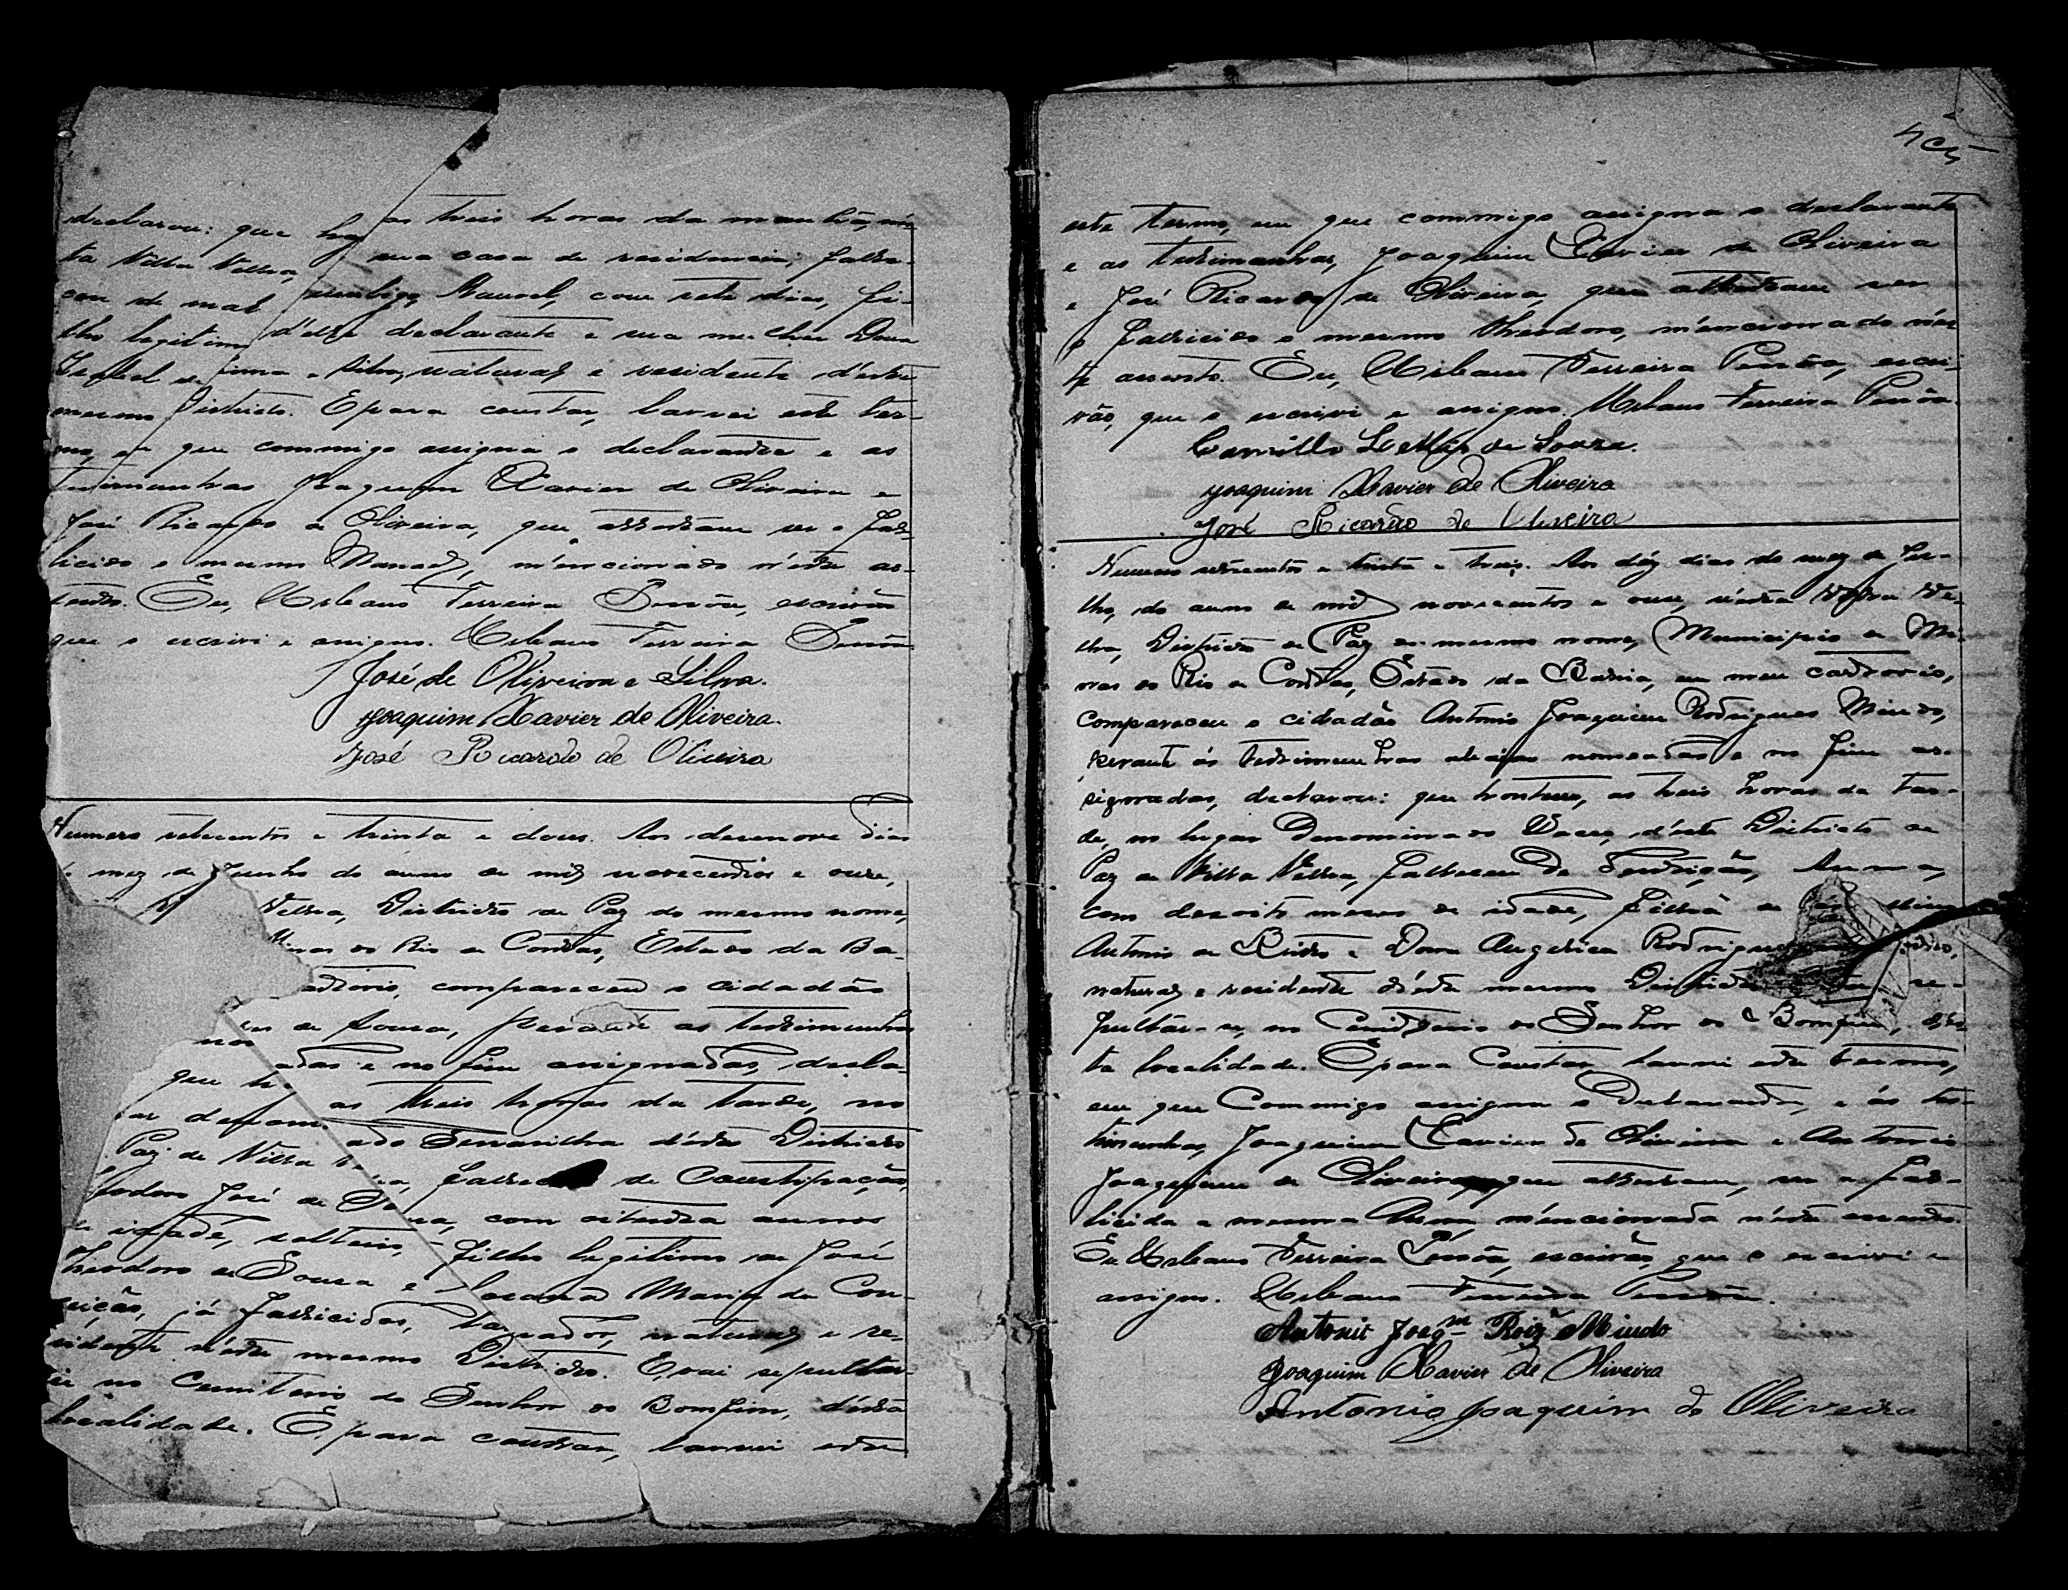 declarou: que hoje as treis horas da manhã, nés-
ta Villa Velha, sua casa de residencia, falle-
ceu de mal umbigo, Manoel, com sete dias, fi-
lho legitimo d'elle declarante e sua mulher Dona
Isabel de Lima e Silva, natural e residente d'este
mesmo Districto. E para constar, lavrei este ter-
mo, em que commigo assigna o declarante e as
testimunhas Joaquim Xavier de Oliveira e
José Ricardo de Oliveira, que attestam ser o fal-
licido o mesmo Manoel, mencionado n'este as-
sento. Eu, Urbano Ferreira Pessôa, escrivão
que o escrivi e assigno. Urbano Ferreira Pessôa
José de Oliveira e Silva.
Joaquim Xavier de Oliveira.
José Ricardo de Oliveira
Numero setecentos e trinta e dous. Aos desenove dias
mez de Junho do anno de mil novecentos e onze,
Velha, Districto de Paz do mesmo nome,
Minas do Rio de Contas, Estado da Ba-
cartorio, compareceu o cidadão
de Souza, perante as testimunhas
adas e no fim assignadas, decla-
que as treis horas da tarde, no
denominado Serrarilha d'este Districto
Paz de Villa Velha, falleceu de Constipação,
Theodoro José de Souza, com oitenta annos
de idade, solteiro, filho legitimo de José
Theodoro de Souza e Maria da Con-
ceição, já fallicidos, lavrador, natural e re-
sidente n'este mesmo Districto. E vai sepultar-
se no Cemiterio do Senhor do Bomfim, d'esta
localidade. E para constar, lavrei este
este termo, em que commigo assigna o declarante
e as testimunhas, Joaquim Xavier de Oliveira
e José Ricardo de Oliveira, que attestam ser
o fallicido o mesmo Theodoro, mencionado nés-
te assento. Eu, Urbano Ferreira Pessôa, escri-
vão, que o escrivi e assigno. Urbano Ferreira Pessôa.
Camillo de Souza.
Joaquim Xavier de Oliveira
José Ricardo de Oliveira
Numero setecentos e trinta e treis. Aos déz dias do mez de Ju-
lho, do anno de mil novecentos e onze, n'esta Villa Ve-
lha, Districto de Paz do mesmo nome, Municipio de Mi-
nas do Rio de Contas, Estado da Bahia, em meu cartorio,
compareceu o cidadão Antonio Joaquim Rodrigues Miudo,
perante ás testimunhas abaixo nomeadas e no fim as-
signadas, declarou: que hontem, as treis horas da tar-
de, no lugar denominado d'este Districto de
Paz de Villa Velha, falleceu de Dentição, Anna,
com desoito meses de idade, filha de
Antonio de Castro e Dona Angelica Rodrigues
natural e residente d'este mesmo Districto re-
pultár-se, no Cemiterio do Senhor do Bomfim, d'és-
ta localidade. E para Constar lavrei este termo,
em que Commigo assigna o Declarante, e ás tes-
timunhas, Joaquim Xavier de Oliveira e Antonio
Joaquim de Oliveira, que attestam, ser a fal-
licida a mesma Anna mencionada n'este assento.
Eu Urbano Ferreira Pessôa, escrivão, que o escrivi e
assigno. Urbano Ferreira Pessôa.
Antonio Joaqm Roiz Miudo
Joaquim Xavier de Oliveira
Antonio Joaquim de Oliveira